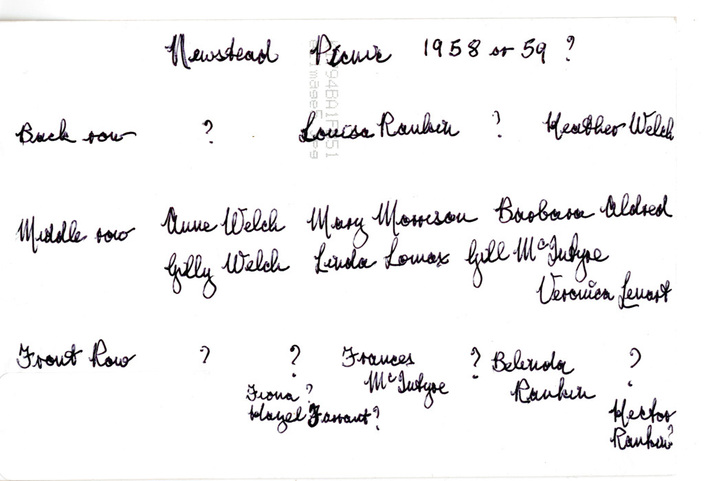 Newstead Picnic 1958 or 59 ?
Back row ? Louisa Rankin ? Heather Welch
Middle row Anne Welch Mary Morrison Barbara Aldred
Gilly Welch Linda Lomax Gill McIntyre
Veronica Lenart
Front Row ? ? Frances ? Belinda ?
McIntyre Rankin
Fiona ?
Hazel Farrant? Hector
Rankin?